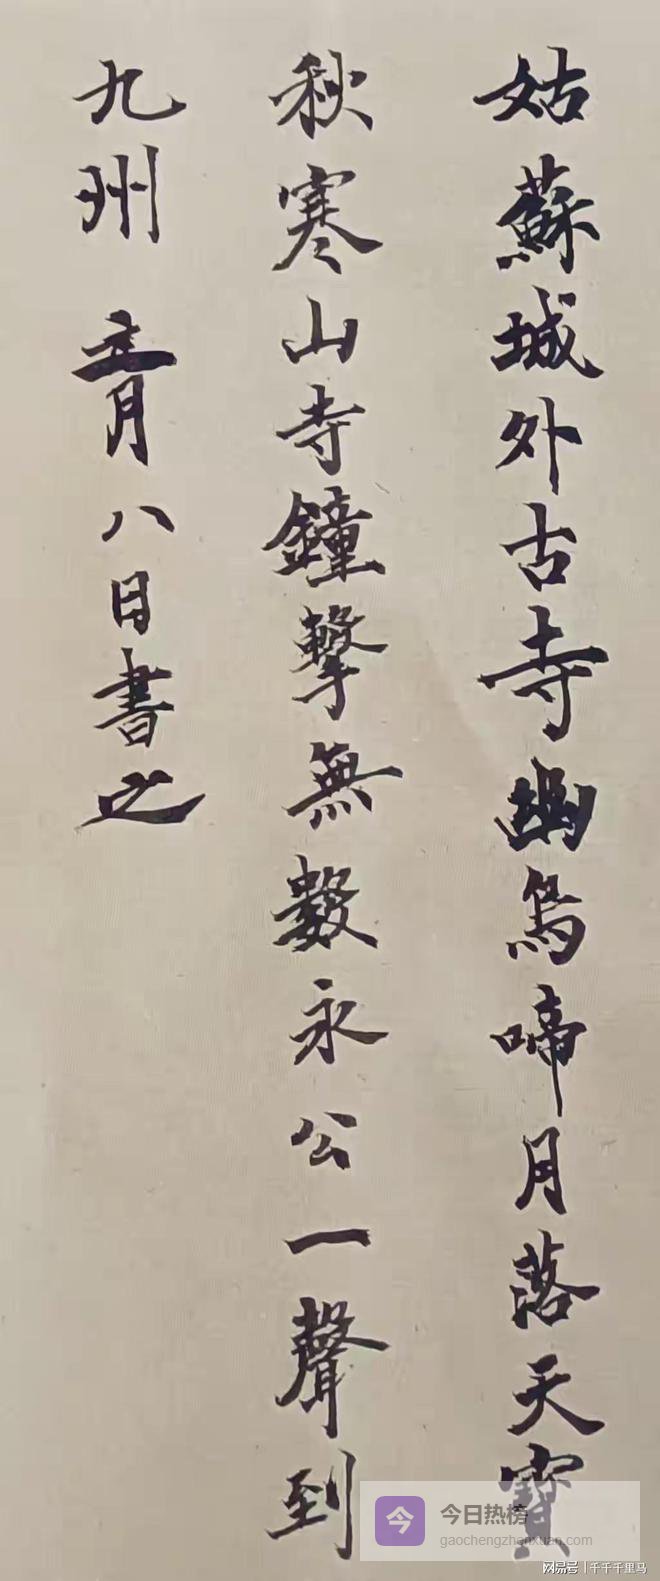 姑蘇城外古寺幽鳥啼月落天寶
秋寒山寺鐘擊無數永公一聲到
九州 八日書之
今 今日热榜
gaochengzhenxuan.com
网易号 | 千千千里马